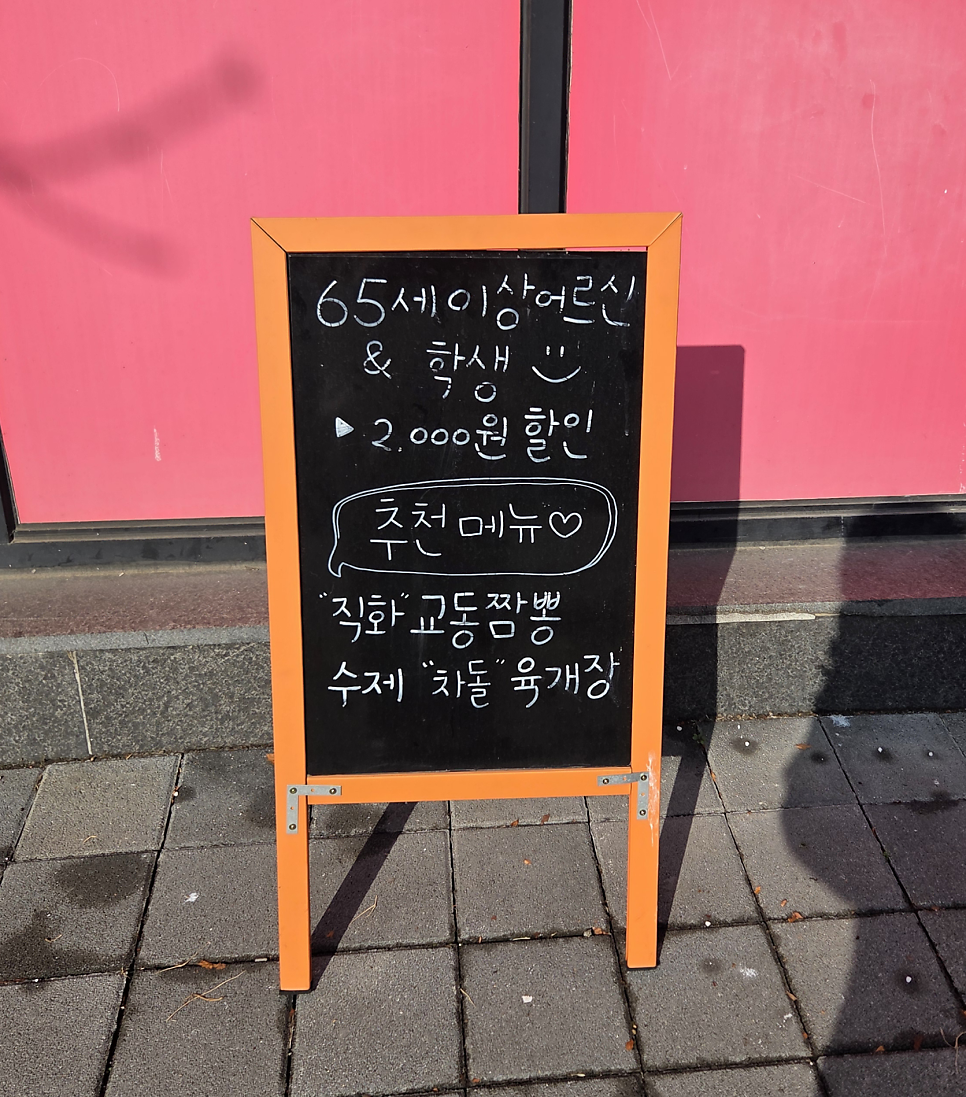 65세이상어르신
& 학생
▶ 2.000원 할인
추천 메뉴♡
"직화" 교동짬뽕
수제 "차돌" 육개장